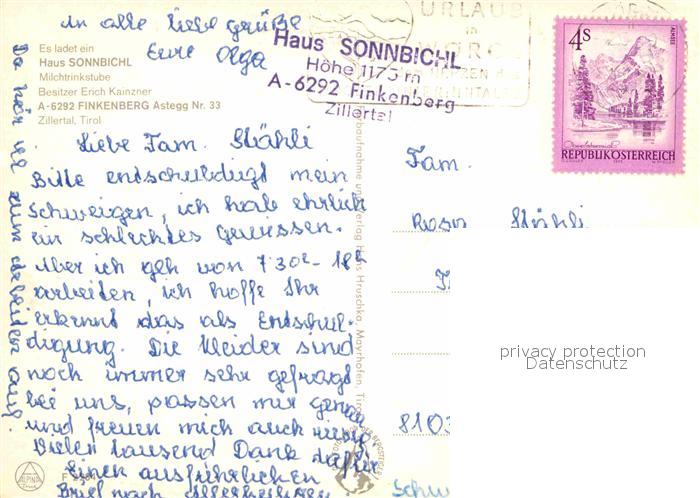 in alle liebe grüße
Eure Olga
Es ladet ein
Haus SONNBICHL
Milchtrinkstube
Besitzer Erich Kainzner
A-6292 FINKENBERG Astegg Nr. 33
Zillertal, Tirol
Haus SONNBICHL
Höhe 1175 m
A-6292 Finkenberg
Zillertal
URLAUB
in
4 S
REPUBLIK ÖSTERREICH
Liebe Fam. Stähli
Bitte entschuldigt mein
Schweigen, ich hab ehrlich
ein schlechtes Gewissen.
Aber ich geh von 7 30h - 18h
arbeiten, ich hoffe Ihr
erkennt das als Entschul-
digung. Die Kleider sind
noch immer sehr gefragt
bei uns, passen mir genau
und freuen mich auch riesig.
Vielen tausend Dank dafür
Einen ausführlichen
Brief nach Allerheiligen
Da hör ich zum arbeiten auf.
Fam.
Rosa Stähli
8103
Schw
Hans Hruschka, Mayrhofen, Tirol
privacy protection
Datenschutz
ALPINA